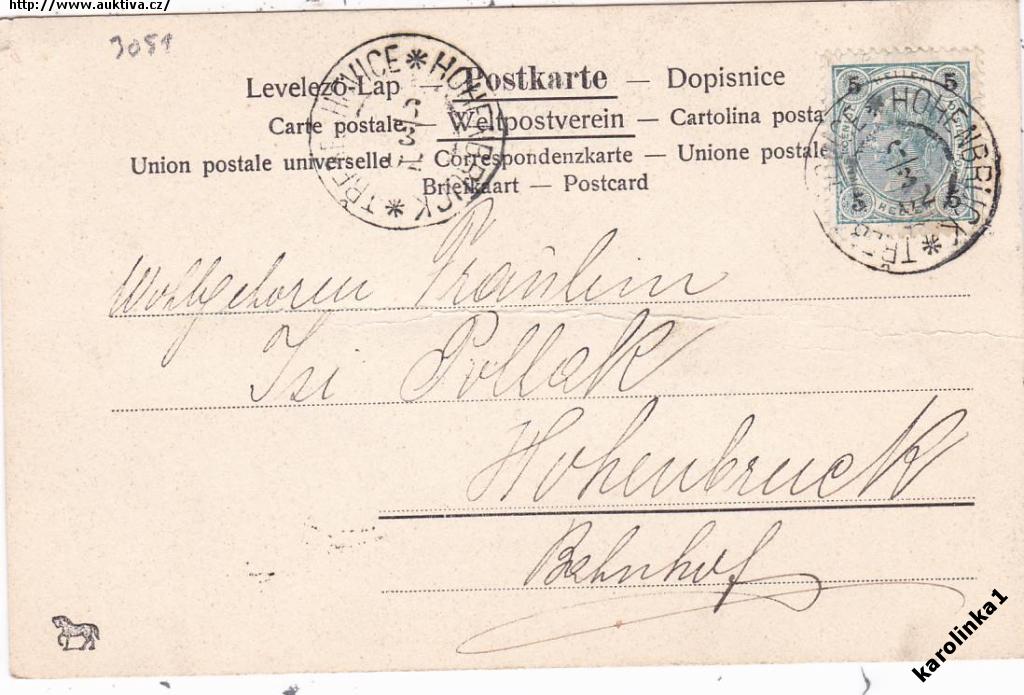 http://www.auktiva.cz/
3081
Levelező-Lap — Postkarte — Dopisnice
Carte postale — Weltpostverein — Cartolina posta
Union postale universelle — Correspondenzkarte — Unione postale
Briefkaart — Postcard
HOHENBRUCK
5 5
HOHENBRUCK
5 5
HELLER
Wohlgeboren Fräulein
Isi Pollak
Hohenbruck
Bahnhof
karolinka1